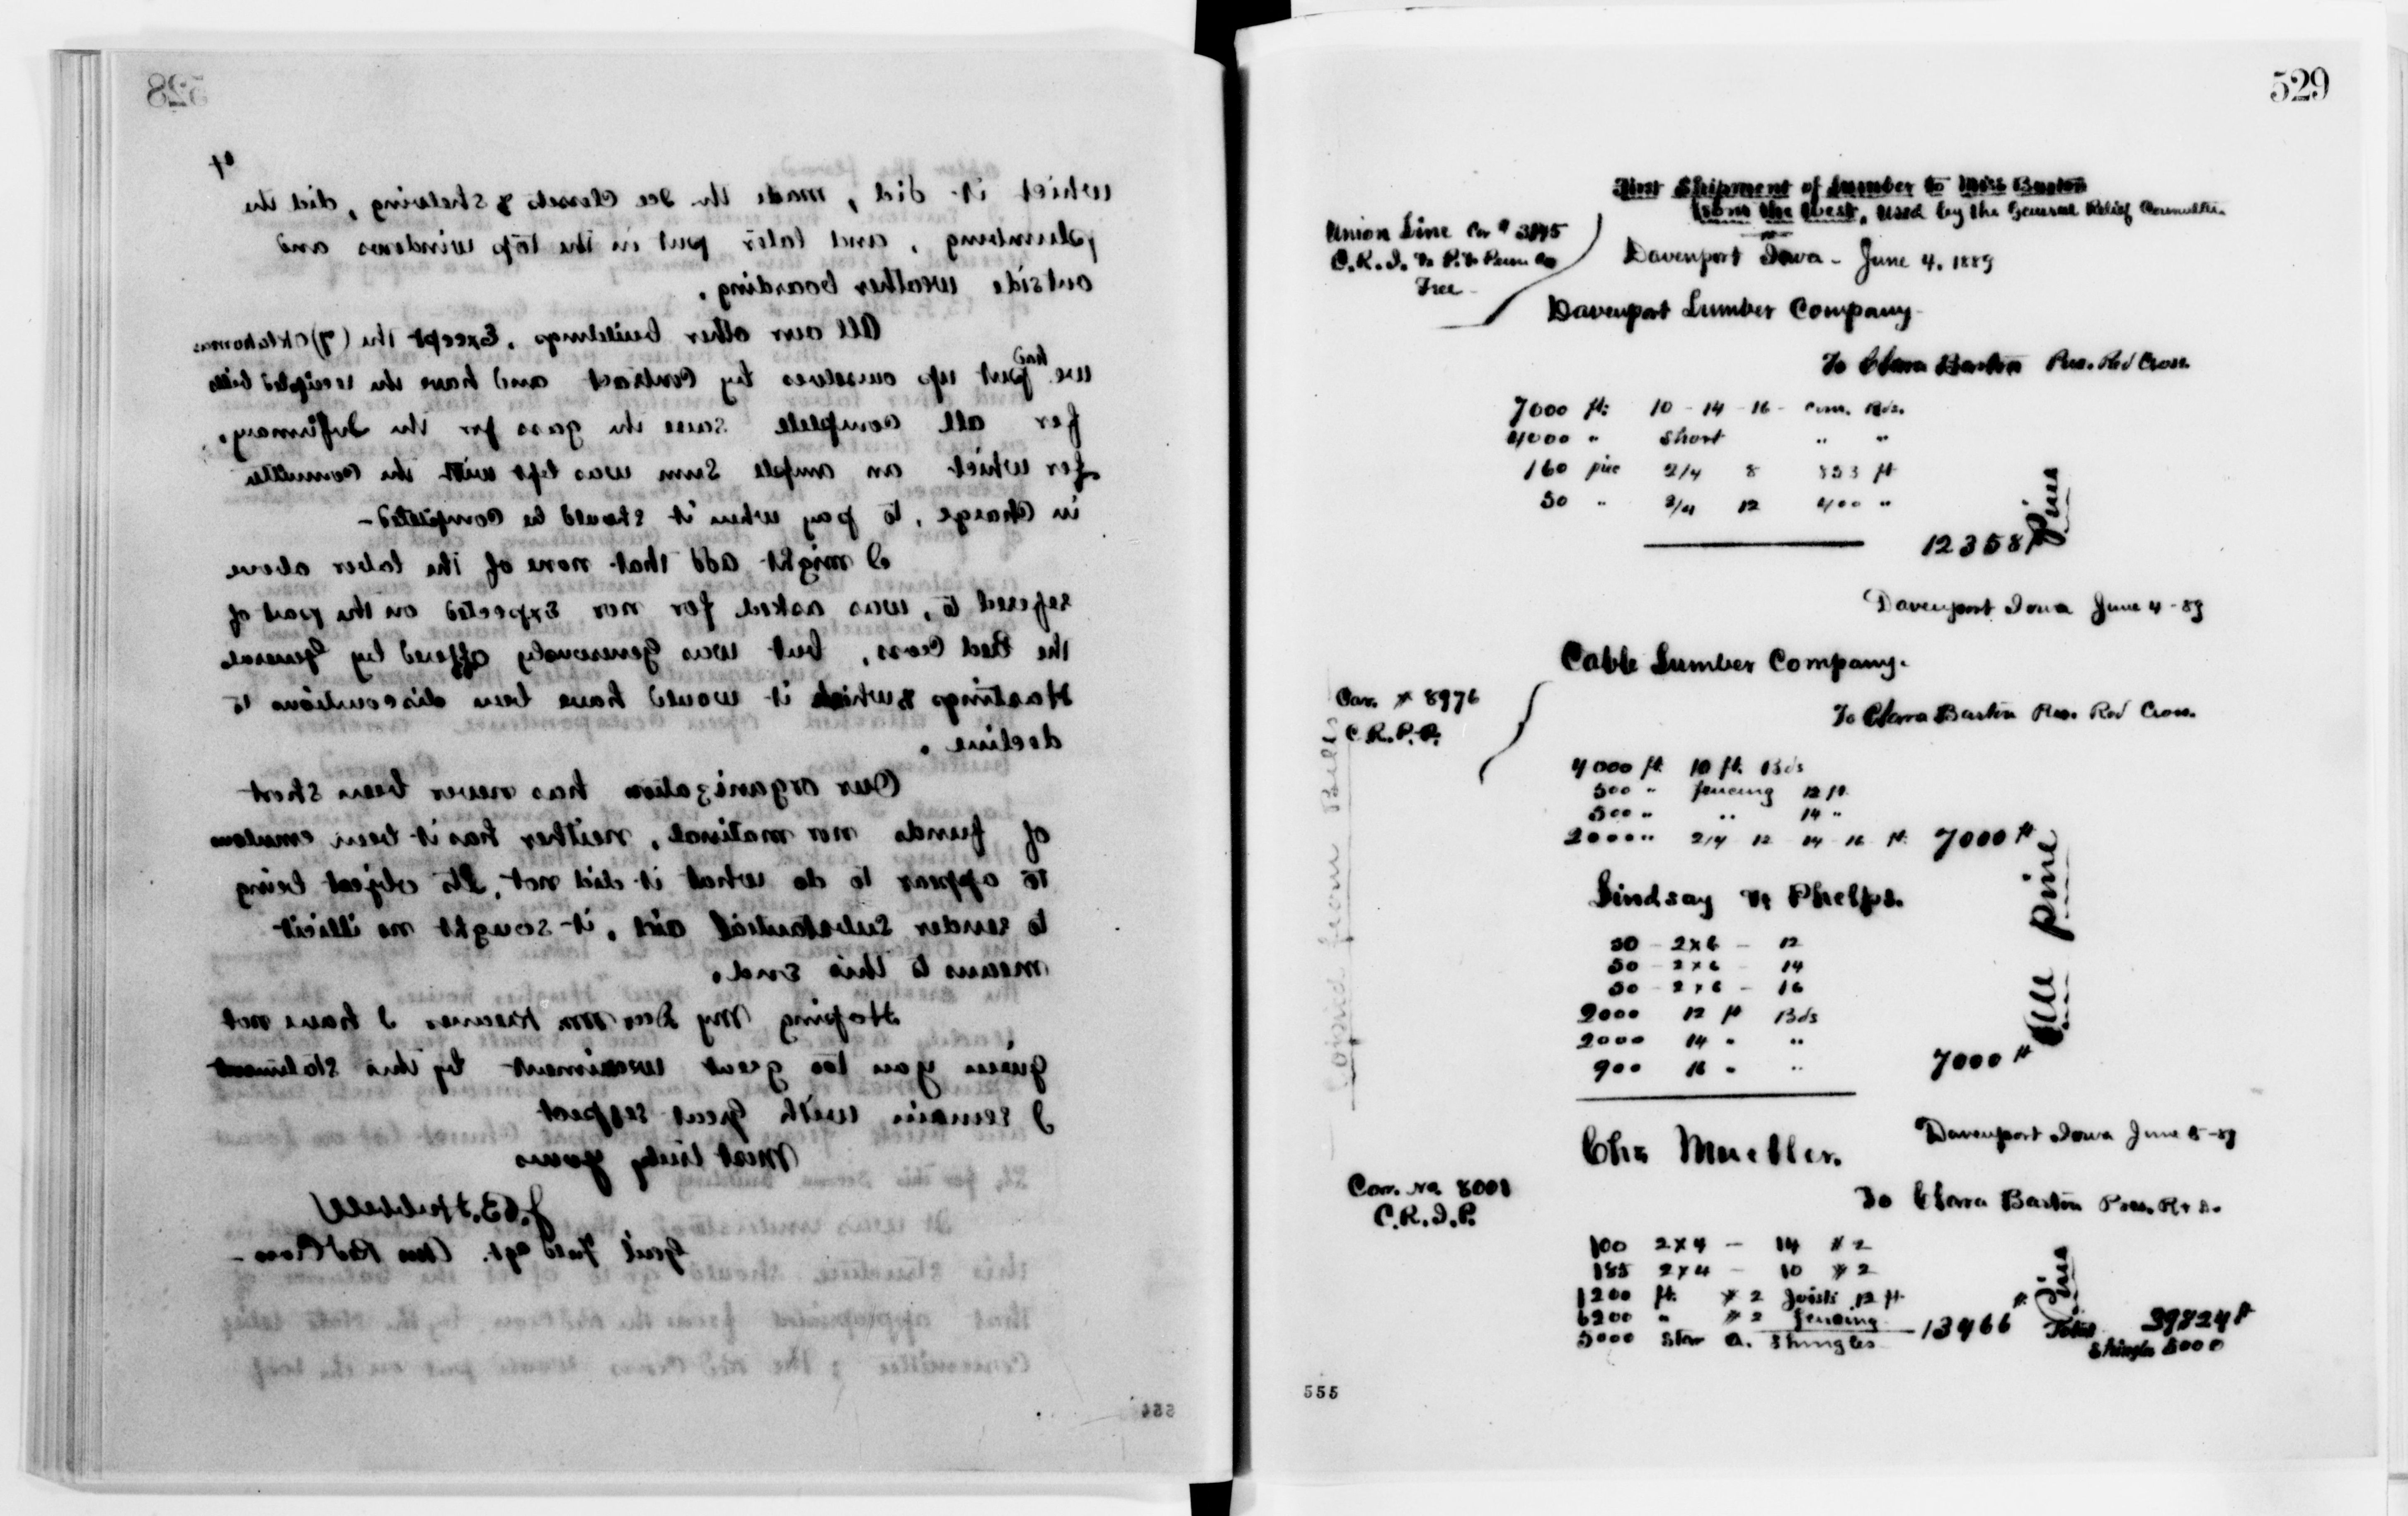 528
4
which it did, made the ice closets & shelving, did the
plumbing, and later put in the top windows and
outside weather boarding.
All our other buildings, Except the (7) Oklahomas
we had put up ourselves by Contract and have the receipted bills
for all complete save the gass for the Infirmary,
for which an ample sum was left with the Committee
in Charge, to pay when it should be Completed-
I might add that none of the labor above
refered to, was asked for nor Expected on the part of
the Red Cross, but was Generously offered by General
Hastings & which it would have been discourtious to
decline.
Our organization has never been short
of funds nor material, neither has it been emulous
to appear to do what it did not, Its object being
to render Substantial aid, it sought no illicit
means to this End.
Hoping My Dear Mr. Kreamer I have not
given you too great weariment by this statement
I remain with Great respect
Most truly yours
J.B. Hubbell
Genl Field agt. Am Red Cross-
554
529
First Shipment of Lumber to Miss Barton
from the West, used by the General Relief Committee.
Union Line Car # 3145
C.R.I. & P. & Penn
Free-
Davenport Iowa - June 4. 1889
Davenport Lumber Company-
To Clara Barton Pres. Red Cross.
7000 ft: 10 - 14 - 16 - Com. Bds.
4000 " Short " "
160 pice 2/4 8 853 ft
50 " 2/4 12 400 "
12358 ft Pine
Davenport Iowa June 4-89
Cable Lumber Company.
Car. # 8976
C.R.P.R.
To Clara Barton Pres. Red Cross.
4000 ft. 10 ft. Bds
500 " fencing 12 ft.
500 " " 14 "
2000 " 2/4 12 14 16 ft. 7000 ft
Lindsay & Phelps.
50 - 2x6 - 12
50 - 2x6 - 14
50 - 2x6 - 16
2000 12 ft Bds
2000 14 " "
900 16 " "
7000 ft
All pine
Copied from Bills
Davenport Iowa June 5-89
Chs Mueller.
Car. No. 8001
C.R.I.P.
To Clara Barton Pres. R + A.
100 2x4 - 14 #2
185 2x4 - 10 #2
1200 ft. #2 Joists 12 ft
6200 " #2 fencing
5000 Star A. Shingles
13466 ft Pine
Total 39824 ft
Shingles 5000
555